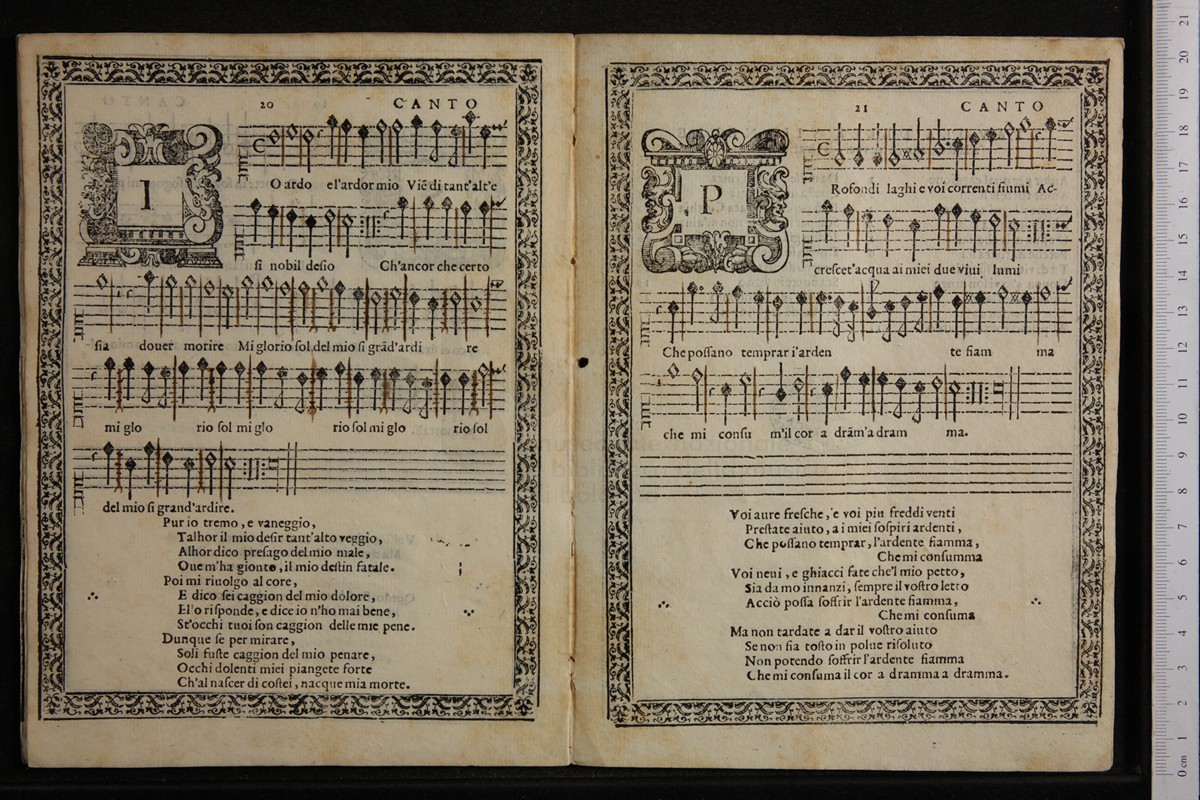 20 CANTO
I O ardo el'ardor mio Viẽ di tant'alt'e
ſi nobil deſio Ch'ancor che certo
ſia douer morire Mi glorio ſol del mio ſi grãd'ardi re
mi glo rio ſol mi glo rio ſol mi glo rio ſol
del mio ſi grand'ardire.
Pur io tremo, e vaneggio,
Talhor il mio deſir tant'alto veggio,
Alhor dico preſago del mio male,
Oue m'ha gionto, il mio deſtin fatale.
Poi mi riuolgo al core,
E dico ſei caggion del mio dolore,
Ell'o riſponde, e dice io n'ho mai bene,
St'occhi tuoi ſon caggion delle mie pene.
Dunque ſe per mirare,
Soli fuſte caggion del mio penare,
Occhi dolenti miei piangete forte
Ch'al naſcer di coſtei, nacque mia morte.
21 CANTO
P Rofondi laghi e voi correnti fiumi Ac-
creſcet'acqua ai miei due viui lumi
Che poſſano temprar i'arden te fiam ma
che mi conſu m'il cor a drãm'a dram ma.
Voi aure freſche, e voi piu freddi venti
Preſtate aiuto, a i miei ſoſpiri ardenti,
Che poſſano temprar, l'ardente fiamma,
Che mi conſumma
Voi neui, e ghiacci fate che'l mio petto,
Sia da mo innanzi, ſempre il voſtro letto
Acciò poſſa ſoffrir l'ardente fiamma,
Che mi conſuma
Ma non tardate a dar il voſtro aiuto
Se non ſia toſto in polue riſoluto
Non potendo ſoffrir l'ardente fiamma
Che mi conſuma il cor a dramma a dramma.
0 cm 1 2 3 4 5 6 7 8 9 10 11 12 13 14 15 16 17 18 19 20 21